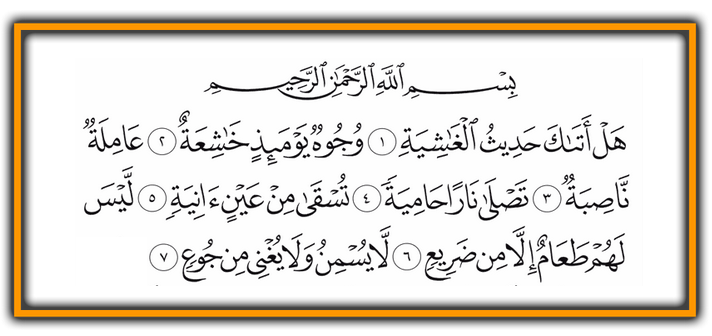 بِسْمِ ٱللَّهِ ٱلرَّحْمَٰنِ ٱلرَّحِيمِ
هَلْ أَتَىٰكَ حَدِيثُ ٱلْغَٰشِيَةِ ١ وُجُوهٌ يَوْمَئِذٍ خَٰشِعَةٌ ٢ عَامِلَةٌ
نَّاصِبَةٌ ٣ تَصْلَىٰ نَارًا حَامِيَةً ٤ تُسْقَىٰ مِنْ عَيْنٍ ءَانِيَةٍ ٥ لَّيْسَ
لَهُمْ طَعَامٌ إِلَّا مِن ضَرِيعٍ ٦ لَّا يُسْمِنُ وَلَا يُغْنِى مِن جُوعٍ ٧